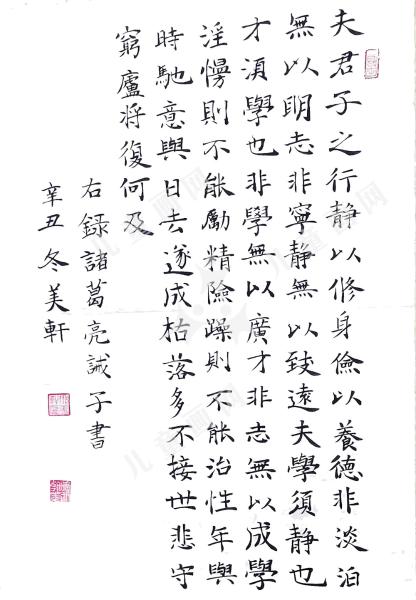 夫君子之行静以修身儉以養德非淡泊
無以明志非寧静無以致遠夫學須静也
才須學也非學無以廣才非志無以成學
淫慢則不能勵精險躁則不能治性年與
時馳意與日去遂成枯落多不接世悲守
窮廬將復何及
右録諸葛亮誡子書
辛丑冬美軒